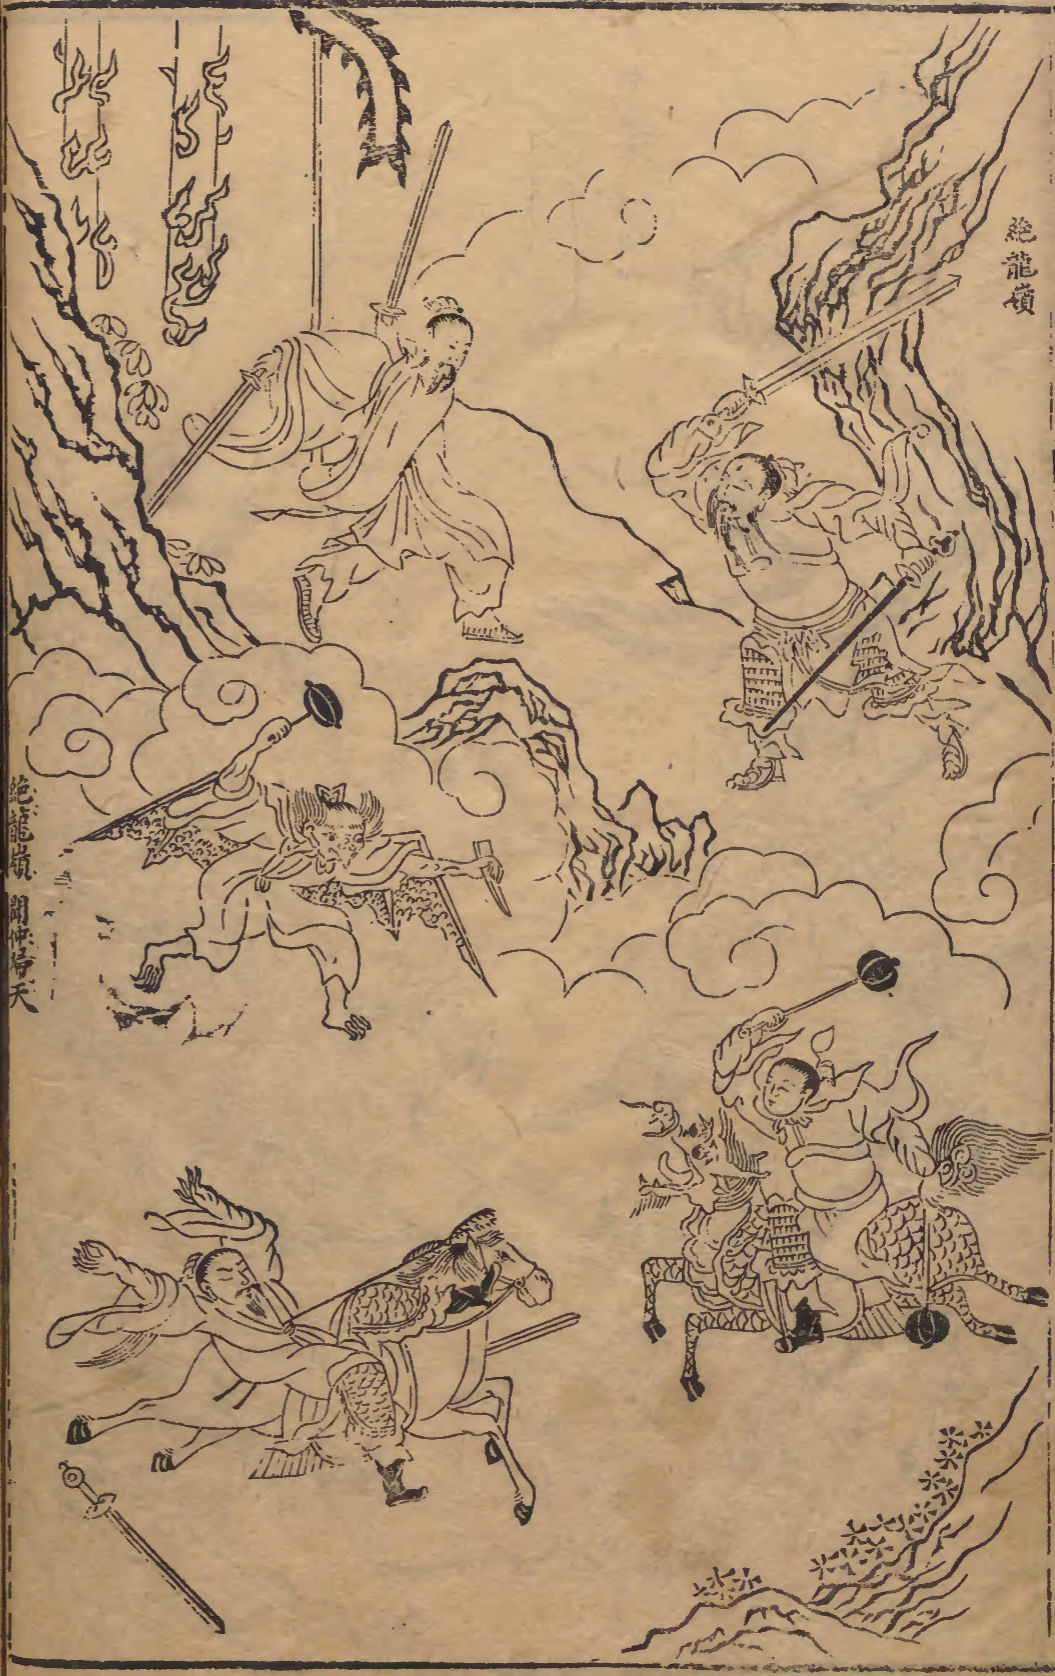 絶龍嶺
絶龍嶺 聞仲歸天